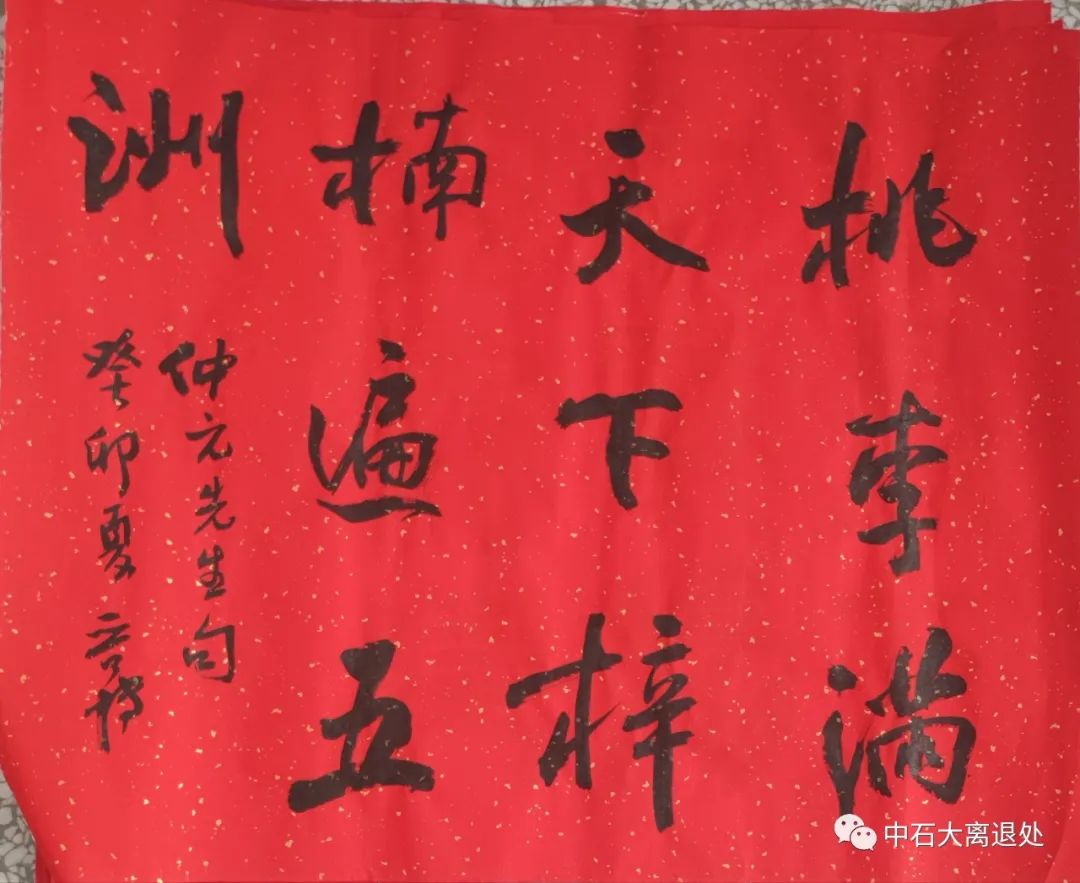 桃李满
天下梓
楠遍五
洲
仲元先生句
癸卯夏
中石大离退处